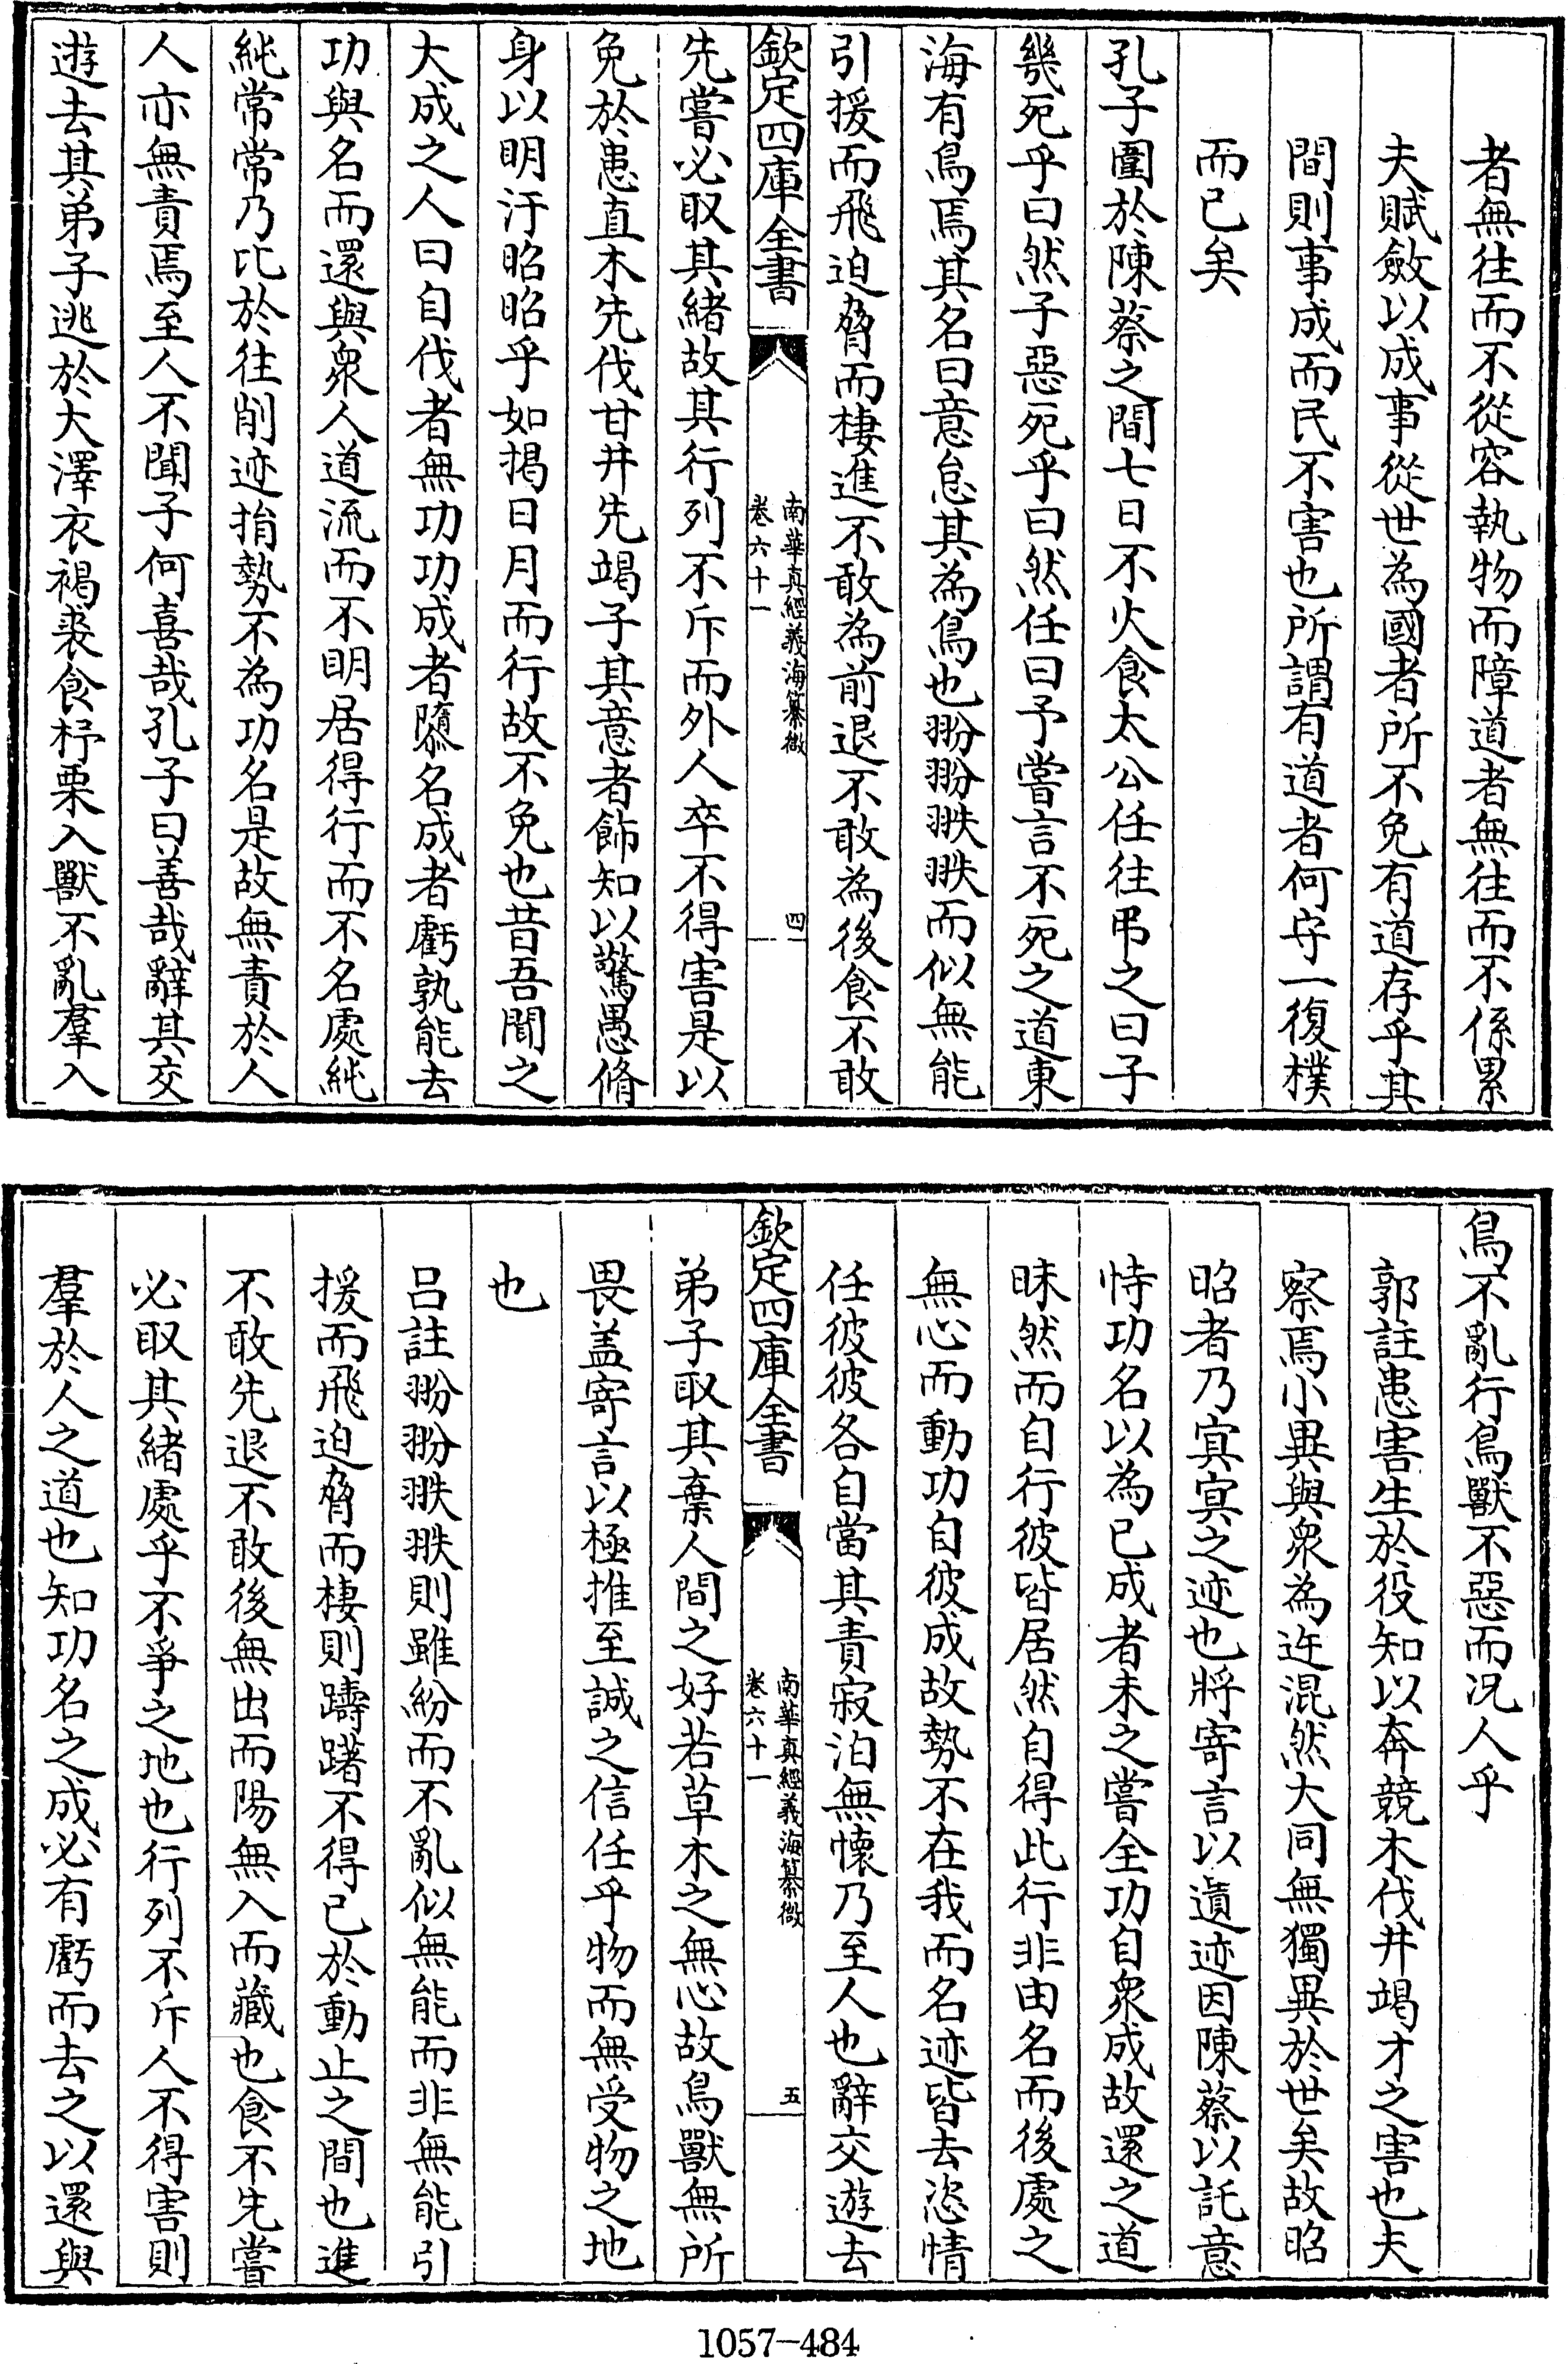 者無往而不從容執物而障道者無往而不係累
夫賦斂以成事從世為國者所不免有道存乎其
間則事成而民不害也所謂有道者何守一復樸
而已矣
孔子圍於陳蔡之間七日不火食太公任往弔之曰子
幾死乎曰然子惡死乎曰然任曰予嘗言不死之道東
海有鳥焉其名曰意怠其為鳥也翂翂翐翐而似無能
引援而飛迫脅而棲進不敢為前退不敢為後食不敢
欽定四庫全書
南華真經義海纂微
卷六十一
四
先嘗必取其緒故其行列不斥而外人卒不得害是以
免於患直木先伐甘井先竭子其意者飾知以驚愚脩
身以明汙昭昭乎如揭日月而行故不免也昔吾聞之
大成之人曰自伐者無功功成者隳名成者虧孰能去
功與名而還與衆人道流而不明居得行而不名處純
純常常乃比於往削迹捐勢不為功名是故無責於人
人亦無責焉至人不聞子何喜哉孔子曰善哉辭其交
遊去其弟子逃於大澤衣褐裘食杼栗入獸不亂羣入
鳥不亂行鳥獸不惡而況人乎
郭註患害生於役知以奔競木伐井竭才之害也夫
察焉小異與衆為迕混然大同無獨異於世矣故昭
昭者乃寘寘之迹也將寄言以遺迹因陳蔡以託意
恃功名以為已成者未之嘗全功自衆成故還之道
昧然而自行彼皆居然自得此行非由名而後處之
無心而動功自彼成故勢不在我而名迹皆去恣情
任彼彼各自當其責寂泊無懷乃至人也辭交遊去
欽定四庫全書
南華真經義海纂微
卷六十一
五
弟子取其棄人間之好若草木之無心故鳥獸無所
畏盖寄言以極推至誠之信任乎物而無受物之地
也
呂註翂翂翐翐則雖紛而不亂似無能而非無能引
援而飛迫脅而棲則躊躇不得已於動止之間也進
不敢先退不敢後無出而陽無入而藏也食不先嘗
必取其緒處乎不爭之地也行列不斥人不得害則
羣於人之道也知功名之成必有虧而去之以還與
1057-484